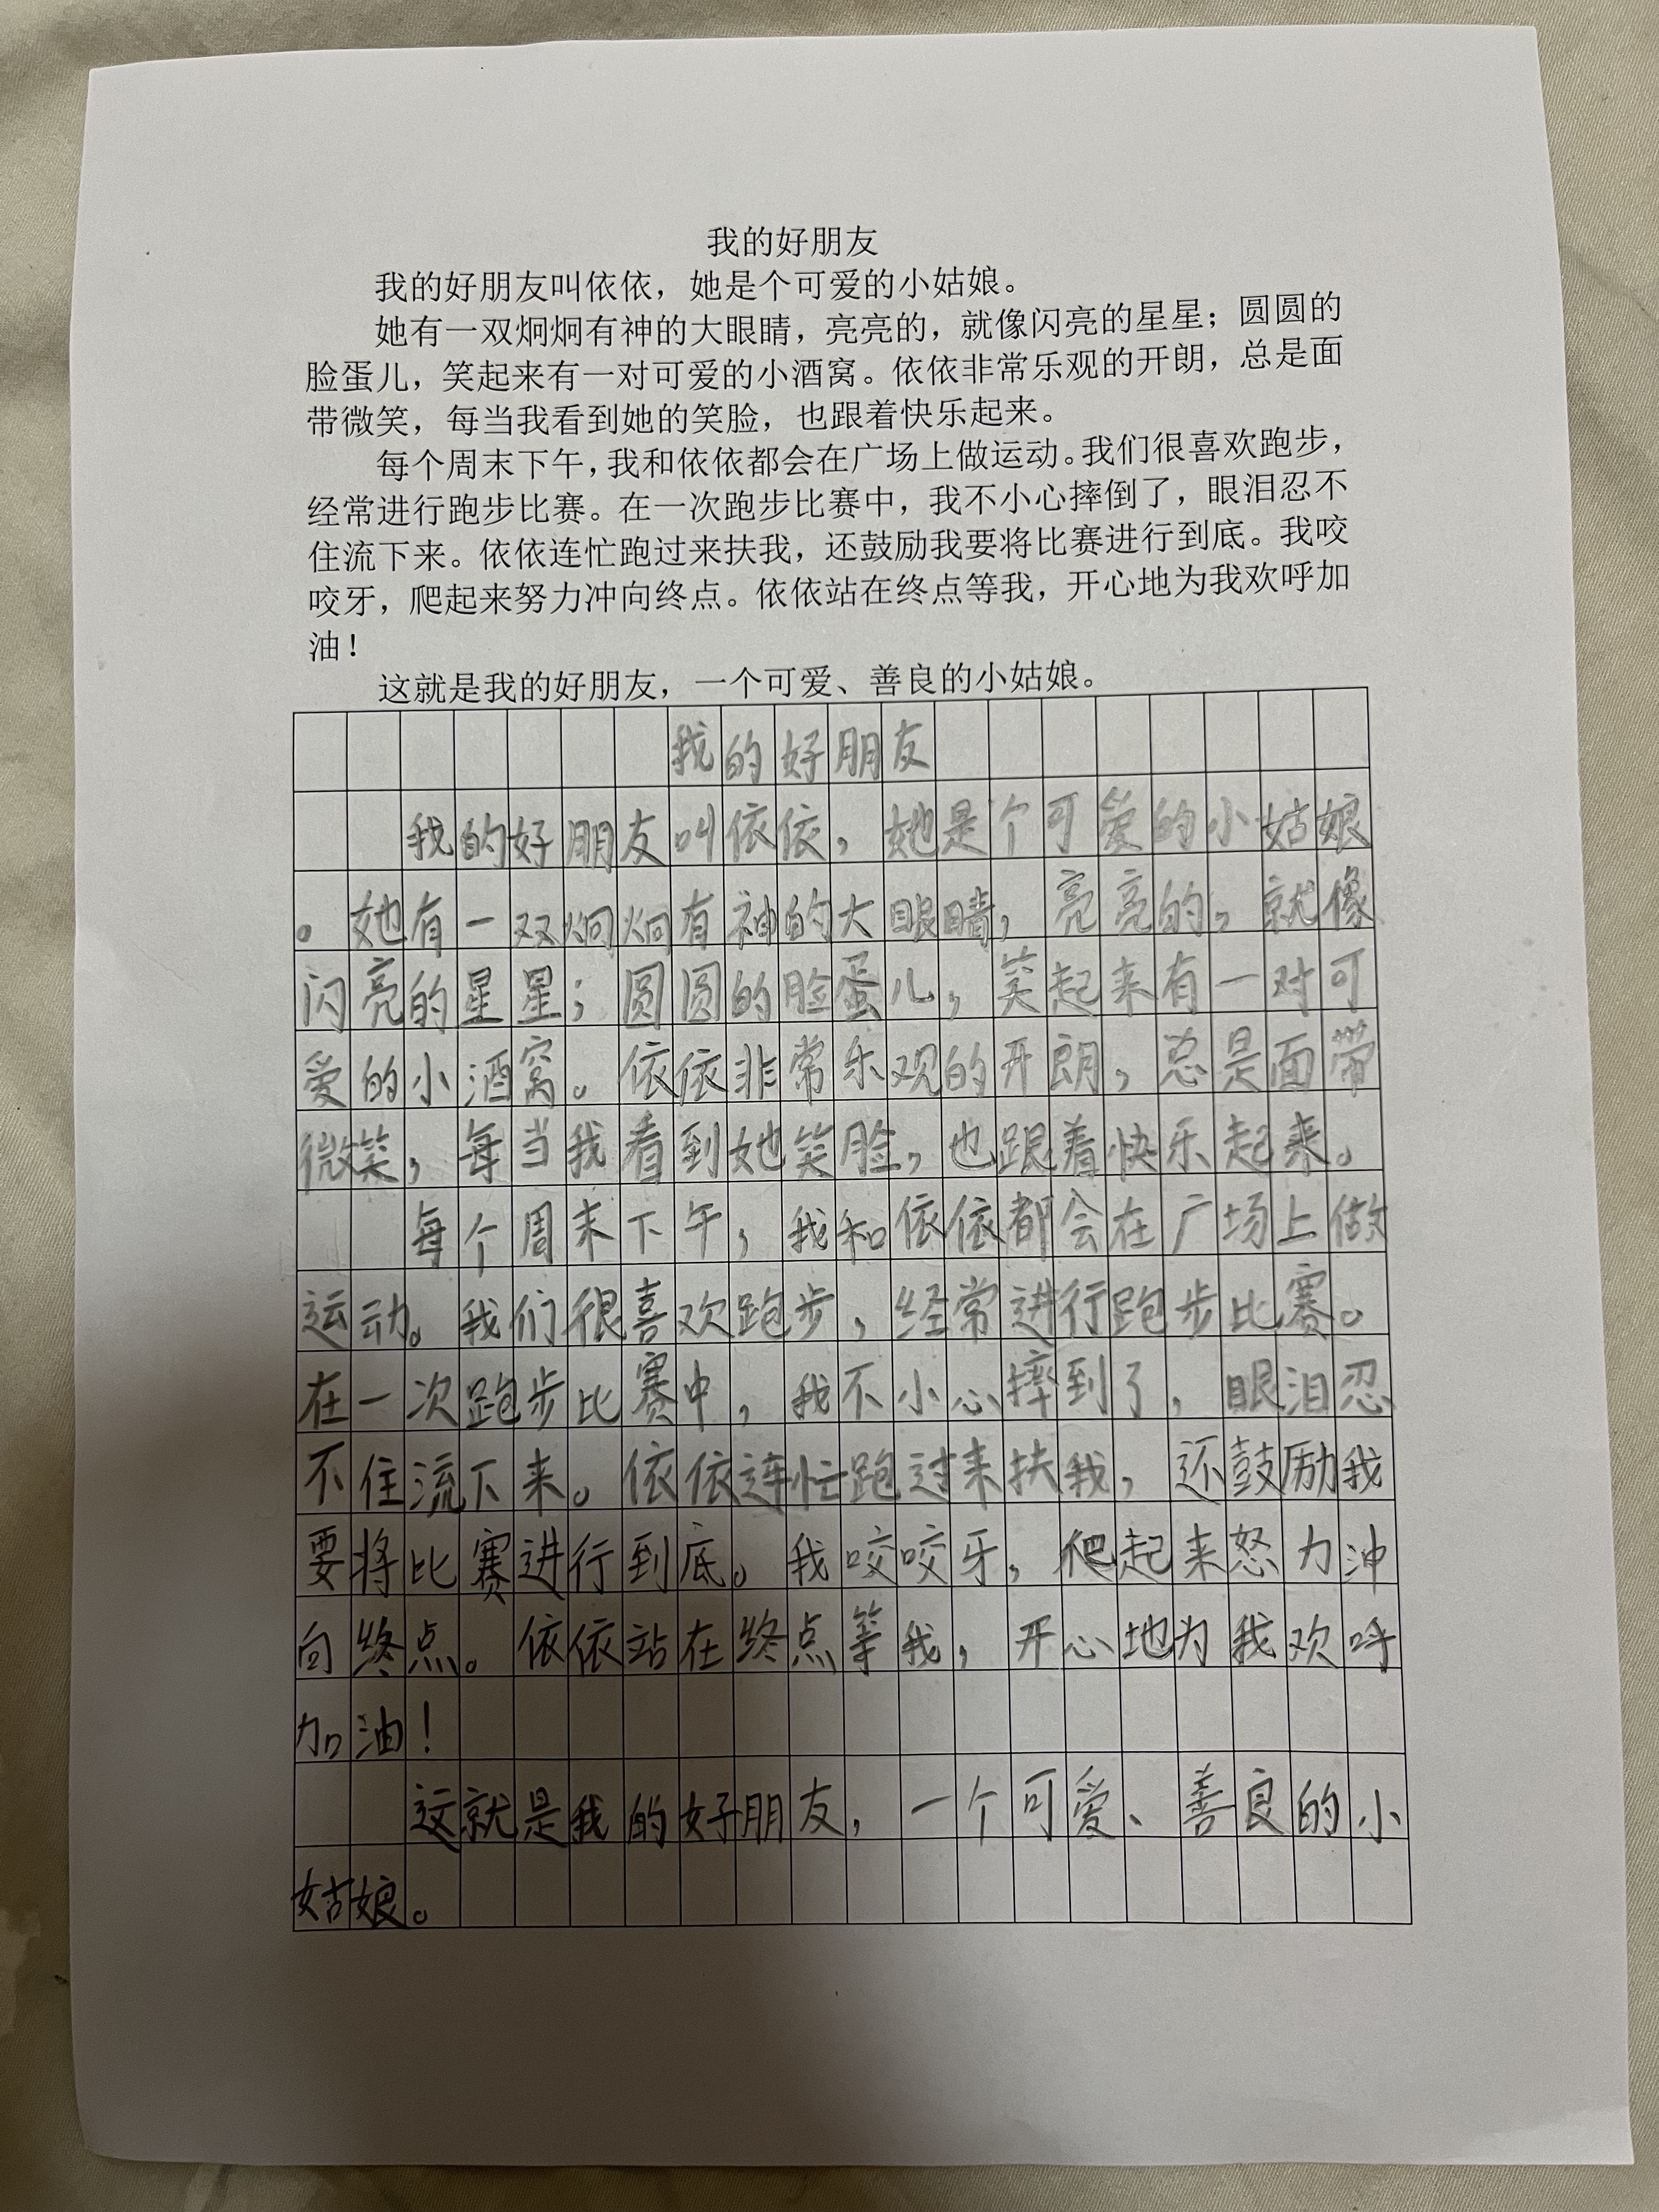 我的好朋友
我的好朋友叫依依，她是个可爱的小姑娘。
她有一双炯炯有神的大眼睛，亮亮的，就像闪亮的星星；圆圆的
脸蛋儿，笑起来有一对可爱的小酒窝。依依非常乐观的开朗，总是面
带微笑，每当我看到她的笑脸，也跟着快乐起来。
每个周末下午，我和依依都会在广场上做运动。我们很喜欢跑步，
经常进行跑步比赛。在一次跑步比赛中，我不小心摔倒了，眼泪忍不
住流下来。依依连忙跑过来扶我，还鼓励我要将比赛进行到底。我咬
咬牙，爬起来努力冲向终点。依依站在终点等我，开心地为我欢呼加
油！
这就是我的好朋友，一个可爱、善良的小姑娘。
我的好朋友
我的好朋友叫依依，她是个可爱的小姑娘
。她有一双炯炯有神的大眼睛，亮亮的，就像
闪亮的星星；圆圆的脸蛋儿，笑起来有一对可
爱的小酒窝。依依非常乐观的开朗，总是面带
微笑，每当我看到她笑脸，也跟着快乐起来。
每个周末下午，我和依依都会在广场上做
运动。我们很喜欢跑步，经常进行跑步比赛。
在一次跑步比赛中，我不小心摔到了，眼泪忍
不住流下来。依依连忙跑过来扶我，还鼓励我
要将比赛进行到底。我咬咬牙，爬起来怒力冲
向终点。依依站在终点等我，开心地为我欢呼
加油！
这就是我的好朋友，一个可爱、善良的小
姑娘。